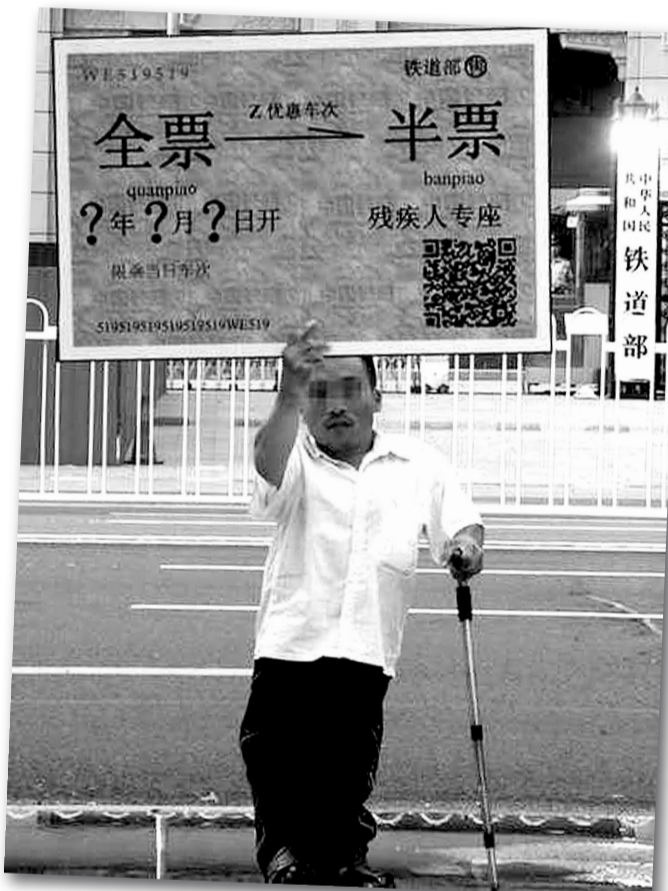 WE519519
铁道部(售)
Z 优惠车次
全票 半票
quanpiao banpiao
?年?月?日开 残疾人专座
限乘当日车次
519519519519519519WE519
中华人民
共和国
铁道部